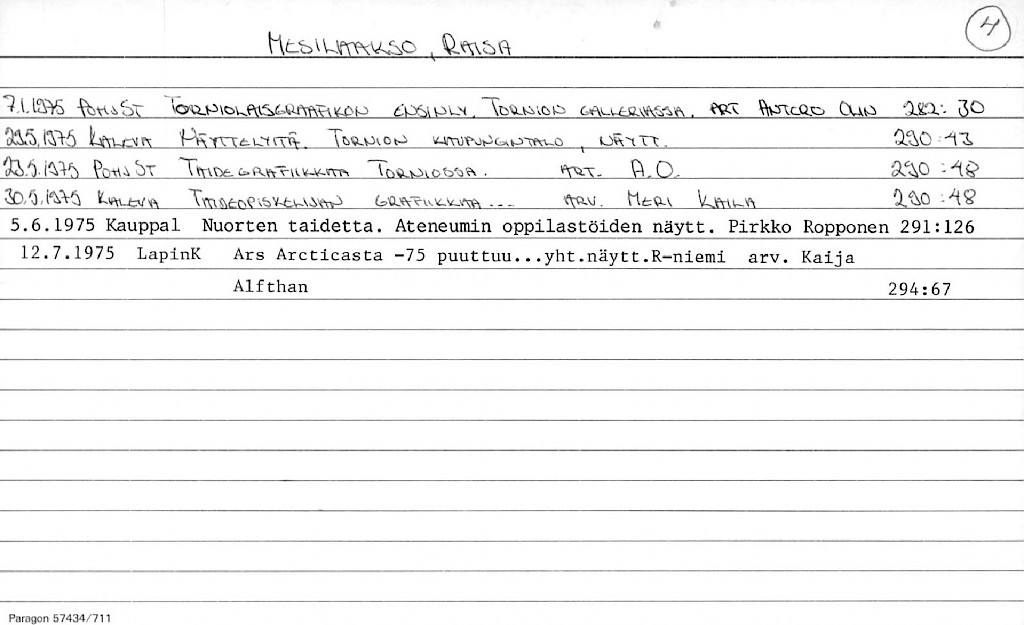 4
MESILAAKSO, RAISA
7.1.1975 POHJST TORNIOLAISGRAAFIKON ENSINÄY. TORNION GALLERIASSA. ART ANTERO OLIN 282:30
29.5.1975 KALEVA NÄYTTELYITÄ. TORNION KAUPUNGINTALO, NÄYTT. 290:43
23.5.1975 POHJST TAIDEGRAFIIKKAA TORNIOSSA. ART. A.O. 290:48
30.5.1975 KALEVA TAIDEOPISKELIJAN GRAFIIKKAA... ARV. MERI KAILA 290:48
5.6.1975 Kauppal Nuorten taidetta. Ateneumin oppilastöiden näytt. Pirkko Ropponen 291:126
12.7.1975 LapinK Ars Arcticasta -75 puuttuu...yht.näytt.R-niemi arv. Kaija
Alfthan 294:67
Paragon 57434/711